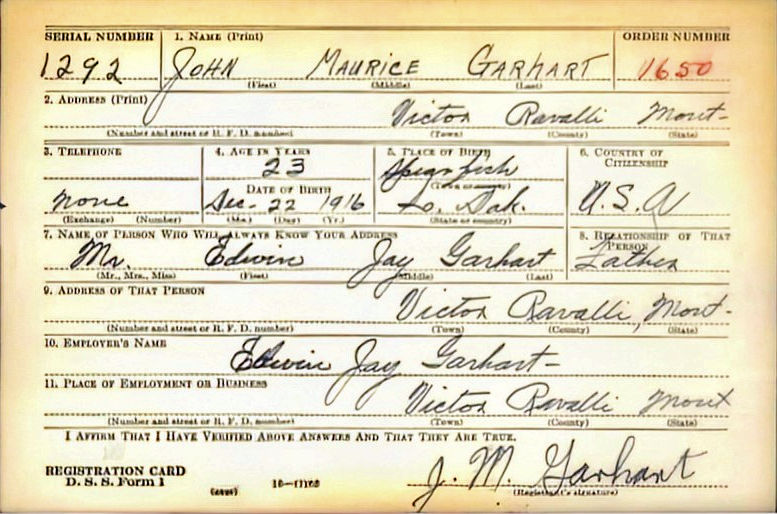 SERIAL NUMBER 1. NAME (Print) ORDER NUMBER
1292 JOHN MAURICE GARHART 1650
(First) (Middle) (Last)
2. ADDRESS (Print)
Victor Ravalli Mont-
(Number and street or R. F. D. number) (Town) (County) (State)
3. TELEPHONE 4. AGE IN YEARS 5. PLACE OF BIRTH 6. COUNTRY OF CITIZENSHIP
23 Spearfish
DATE OF BIRTH (Town or county)
none Dec- 22 1916 So. Dak. U.S.A
(Exchange) (Number) (Mo.) (Day) (Yr.) (State or country)
7. NAME OF PERSON WHO WILL ALWAYS KNOW YOUR ADDRESS 8. RELATIONSHIP OF THAT PERSON
Mr. Edwin Jay Garhart Father
(Mr., Mrs., Miss) (First) (Middle) (Last)
9. ADDRESS OF THAT PERSON
Victor Ravalli, Mont-
(Number and street or R. F. D. number) (Town) (County) (State)
10. EMPLOYER'S NAME
Edwin Jay Garhart-
11. PLACE OF EMPLOYMENT OR BUSINESS
Victor Ravalli Mont
(Number and street or R. F. D. number) (Town) (County) (State)
I AFFIRM THAT I HAVE VERIFIED ABOVE ANSWERS AND THAT THEY ARE TRUE.
REGISTRATION CARD
D. S. S. Form 1 J. M. Garhart
(over) (Registrant's signature)